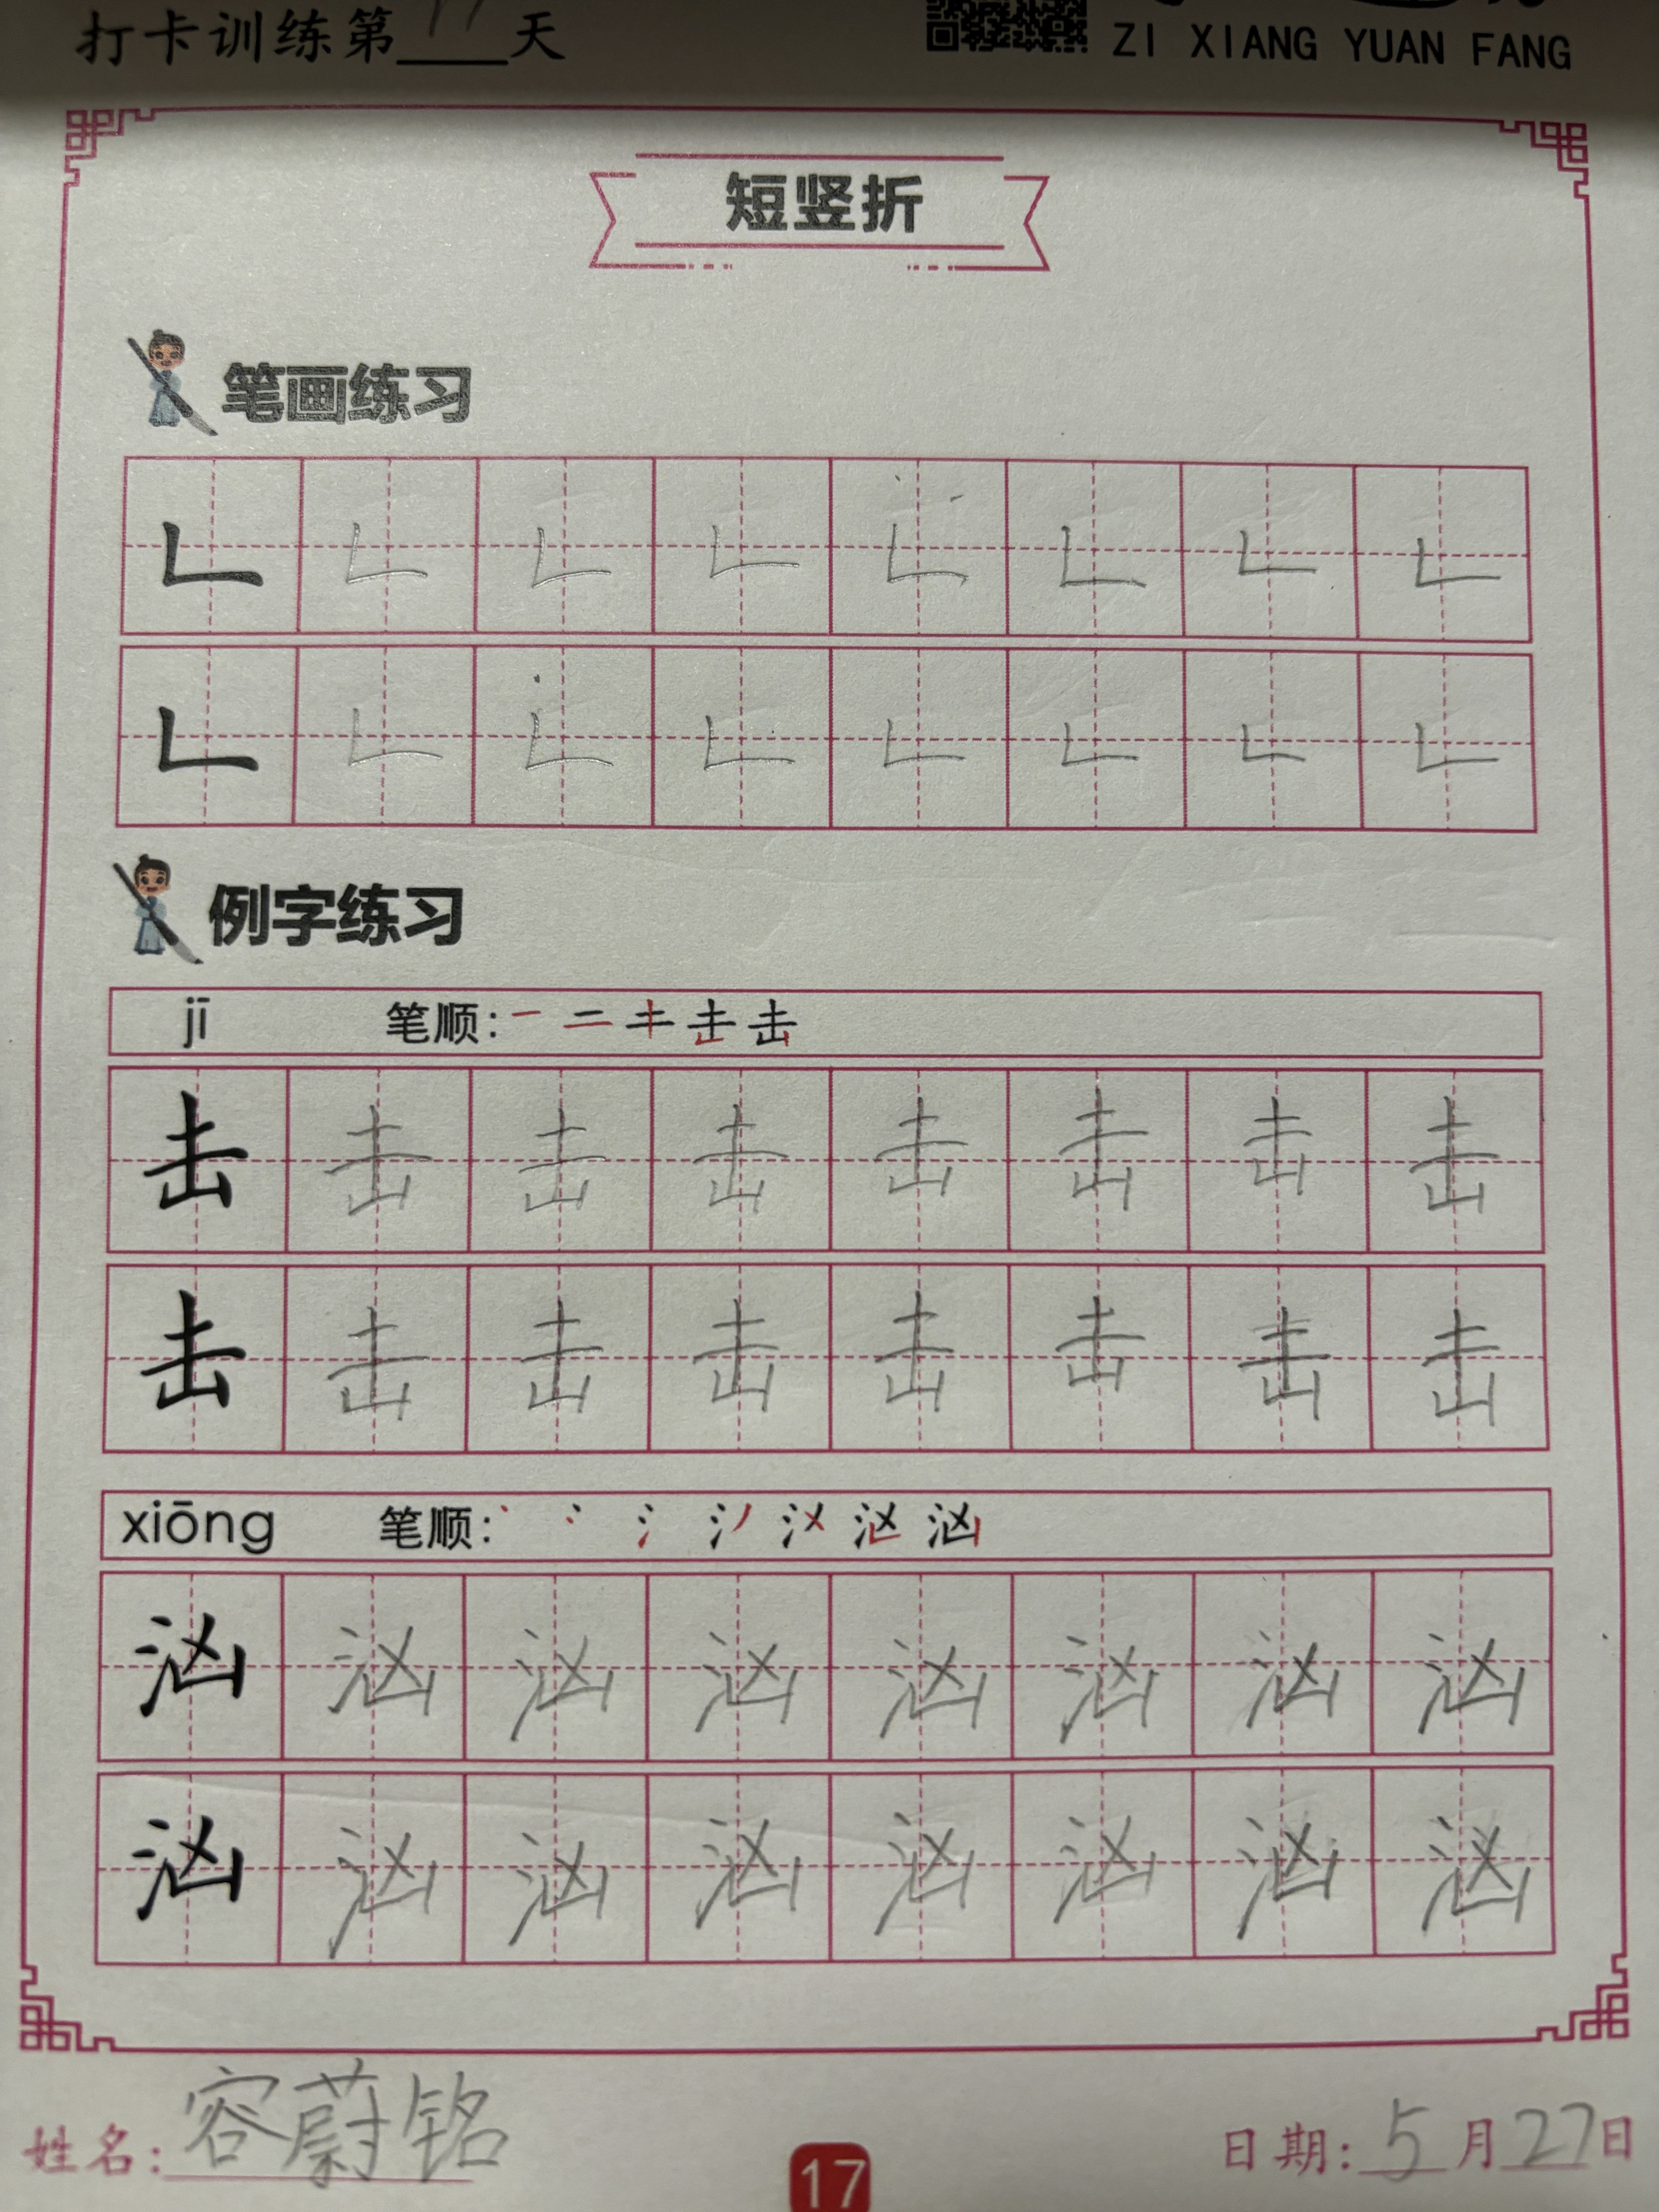 打卡训练第17天
ZI XIANG YUAN FANG
短竖折
笔画练习
𠃊 𠃊 𠃊 𠃊 𠃊 𠃊 𠃊 𠃊
𠃊 𠃊 𠃊 𠃊 𠃊 𠃊 𠃊 𠃊
例字练习
jī 笔顺：
击 击 击 击 击 击 击 击
击 击 击 击 击 击 击 击
xiōng 笔顺：
汹 汹 汹 汹 汹 汹 汹 汹
汹 汹 汹 汹 汹 汹 汹 汹
姓名：容蔚铭
17
日期：5月27日